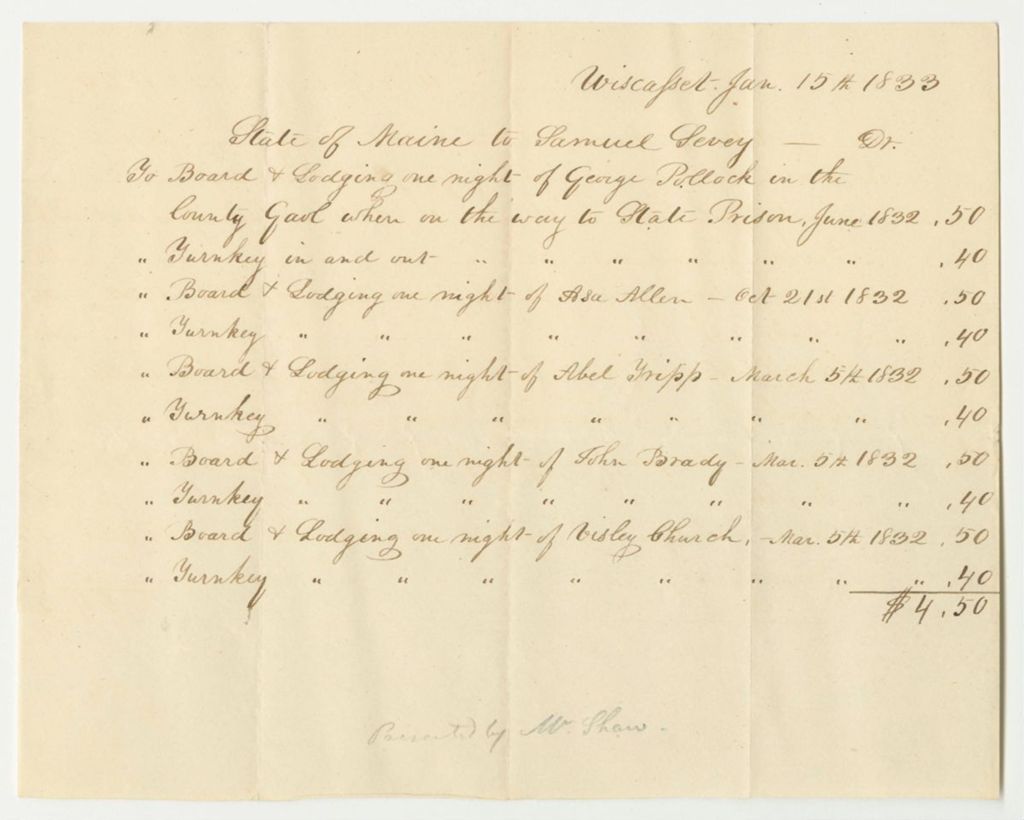 Wiscasset. Jan. 15th 1833
State of Maine to Samuel Sevey — Dr.
To Board & Lodging one night of George Pollock in the
County Gaol when on the way to State Prison, June 1832 .50
" Turnkey in and out " " " " " " .40
" Board & Lodging one night of Asa Allen – Oct 21st 1832 .50
" Turnkey " " " " " " " " .40
" Board & Lodging one night of Abel Tripp – March 5th 1832 .50
" Turnkey " " " " " " " .40
" Board & Lodging one night of John Brady – Mar. 5th 1832 .50
" Turnkey " " " " " " " " .40
" Board & Lodging one night of Visley Church. – Mar. 5th 1832 .50
" Turnkey " " " " " " " " .40
$4.50
Presented by Mr. Shaw.